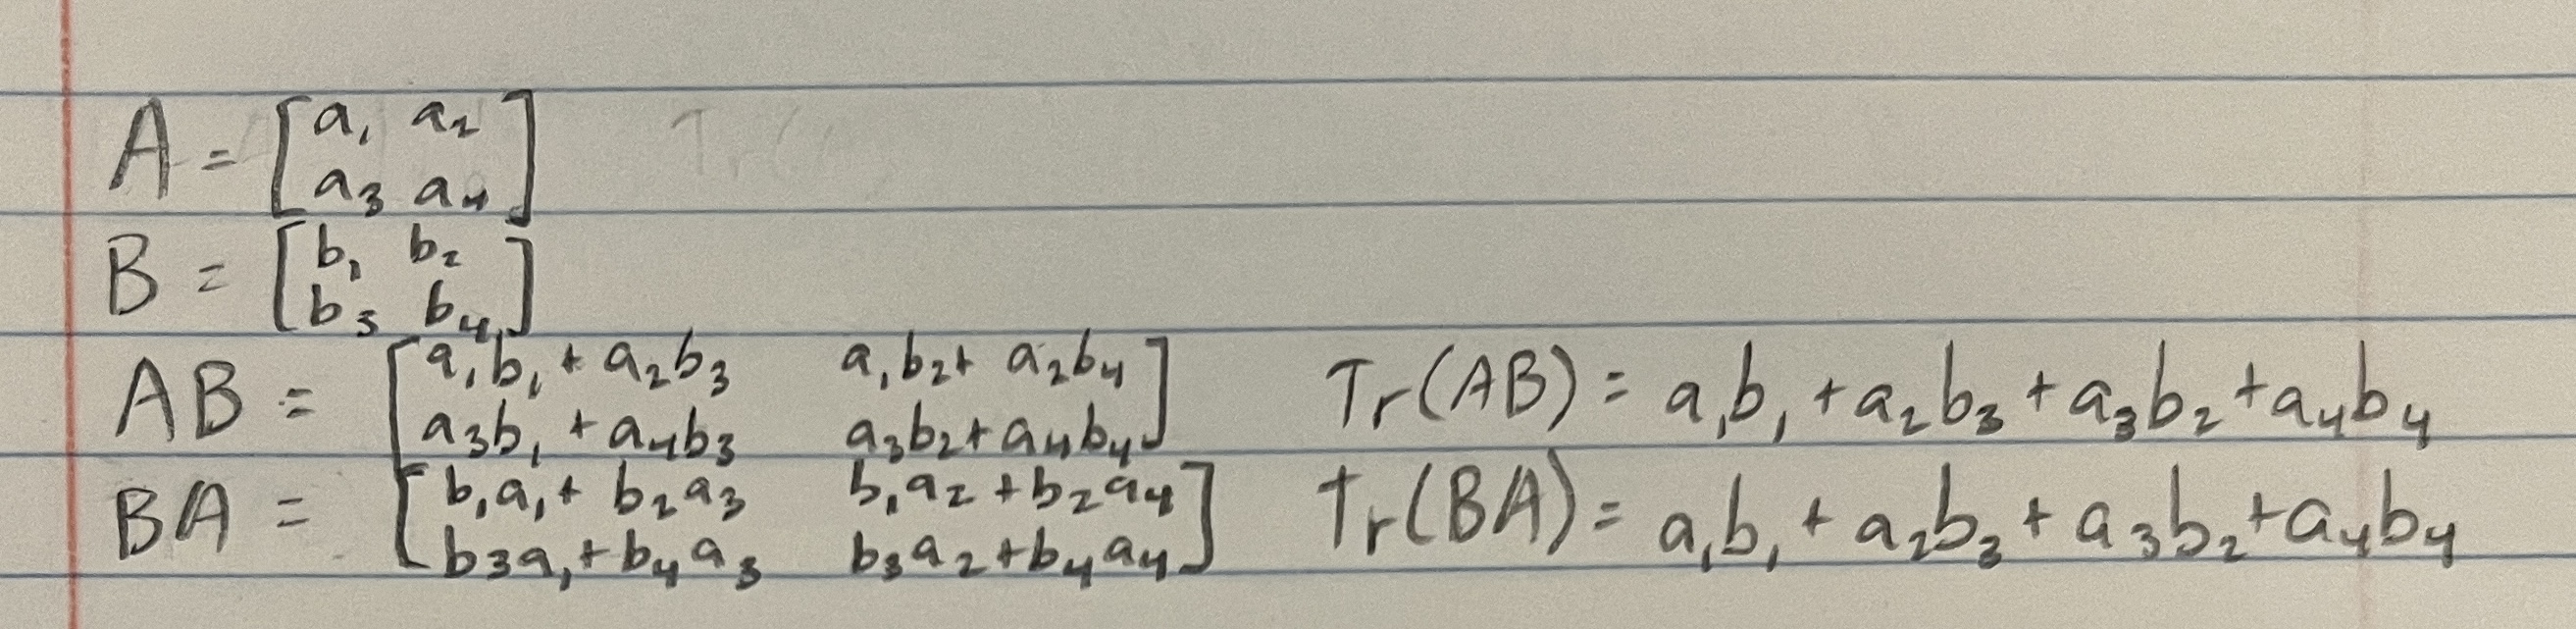 A = [a₁ a₂
a₃ a₄] Tr(
B = [b₁ b₂
b₃ b₄]
AB = [a₁b₁ + a₂b₃ a₁b₂ + a₂b₄
a₃b₁ + a₄b₃ a₃b₂ + a₄b₄] Tr(AB) = a₁b₁ + a₂b₃ + a₃b₂ + a₄b₄
BA = [b₁a₁ + b₂a₃ b₁a₂ + b₂a₄
b₃a₁ + b₄a₃ b₃a₂ + b₄a₄] Tr(BA) = a₁b₁ + a₂b₃ + a₃b₂ + a₄b₄